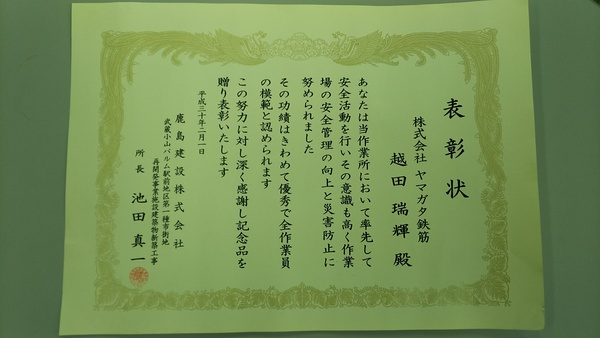 表彰状
株式会社 ヤマガタ鉄筋
越田 瑞輝 殿
あなたは当作業所において率先して
安全活動を行いその意識も高く作業
場の安全管理の向上と災害防止に
努められました
その功績はきわめて優秀で全作業員
の模範と認められます
この努力に対し深く感謝し記念品を
贈り表彰いたします
平成三十年二月一日
鹿島建設株式会社
武蔵小山パルム駅前地区第一種市街地
再開発事業施設建築物新築工事
所長 池田真一